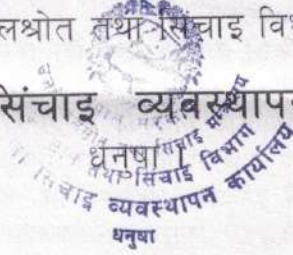 लश्रोत तथा सिंचाइ विभ
सिंचाइ व्यवस्थापन
धनुषा ।
सिंचाइ
तथा सिंचाइ विभाग
सिंचाइ व्यवस्थापन कार्यालय
धनुषा